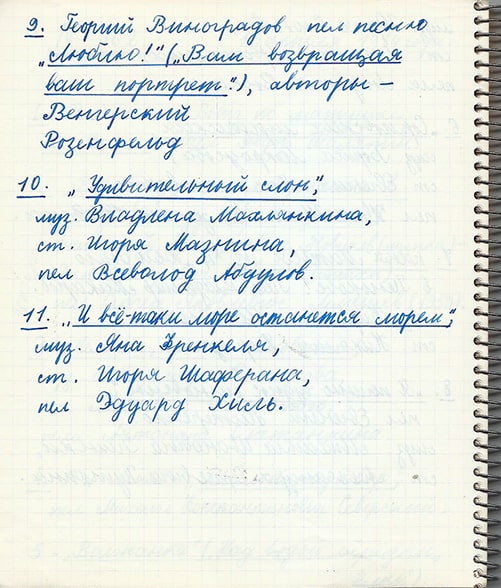 9. Георгий Виноградов пел песню
„Люблю!" („Вам возвращая
ваш портрет"), авторы –
Венгерский
Розенфельд
10. „Удивительный слон",
муз. Владлена Махлянкина,
ст. Игоря Мазнина,
пел Всеволод Абдулов.
11. „И всё-таки море останется морем",
муз. Яна Френкеля,
ст. Игоря Шаферана,
пел Эдуард Хиль.